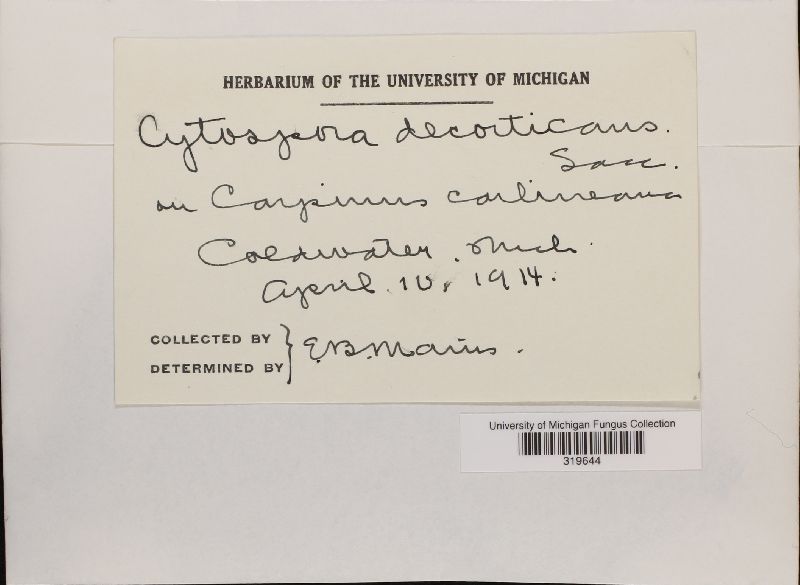 HERBARIUM OF THE UNIVERSITY OF MICHIGAN
Cytospora decorticans.
Sacc.
on Carpinus carlineana
Coldwater, Mich.
April 10, 1914.
COLLECTED BY
DETERMINED BY
E.B. Mains.
University of Michigan Fungus Collection
319644